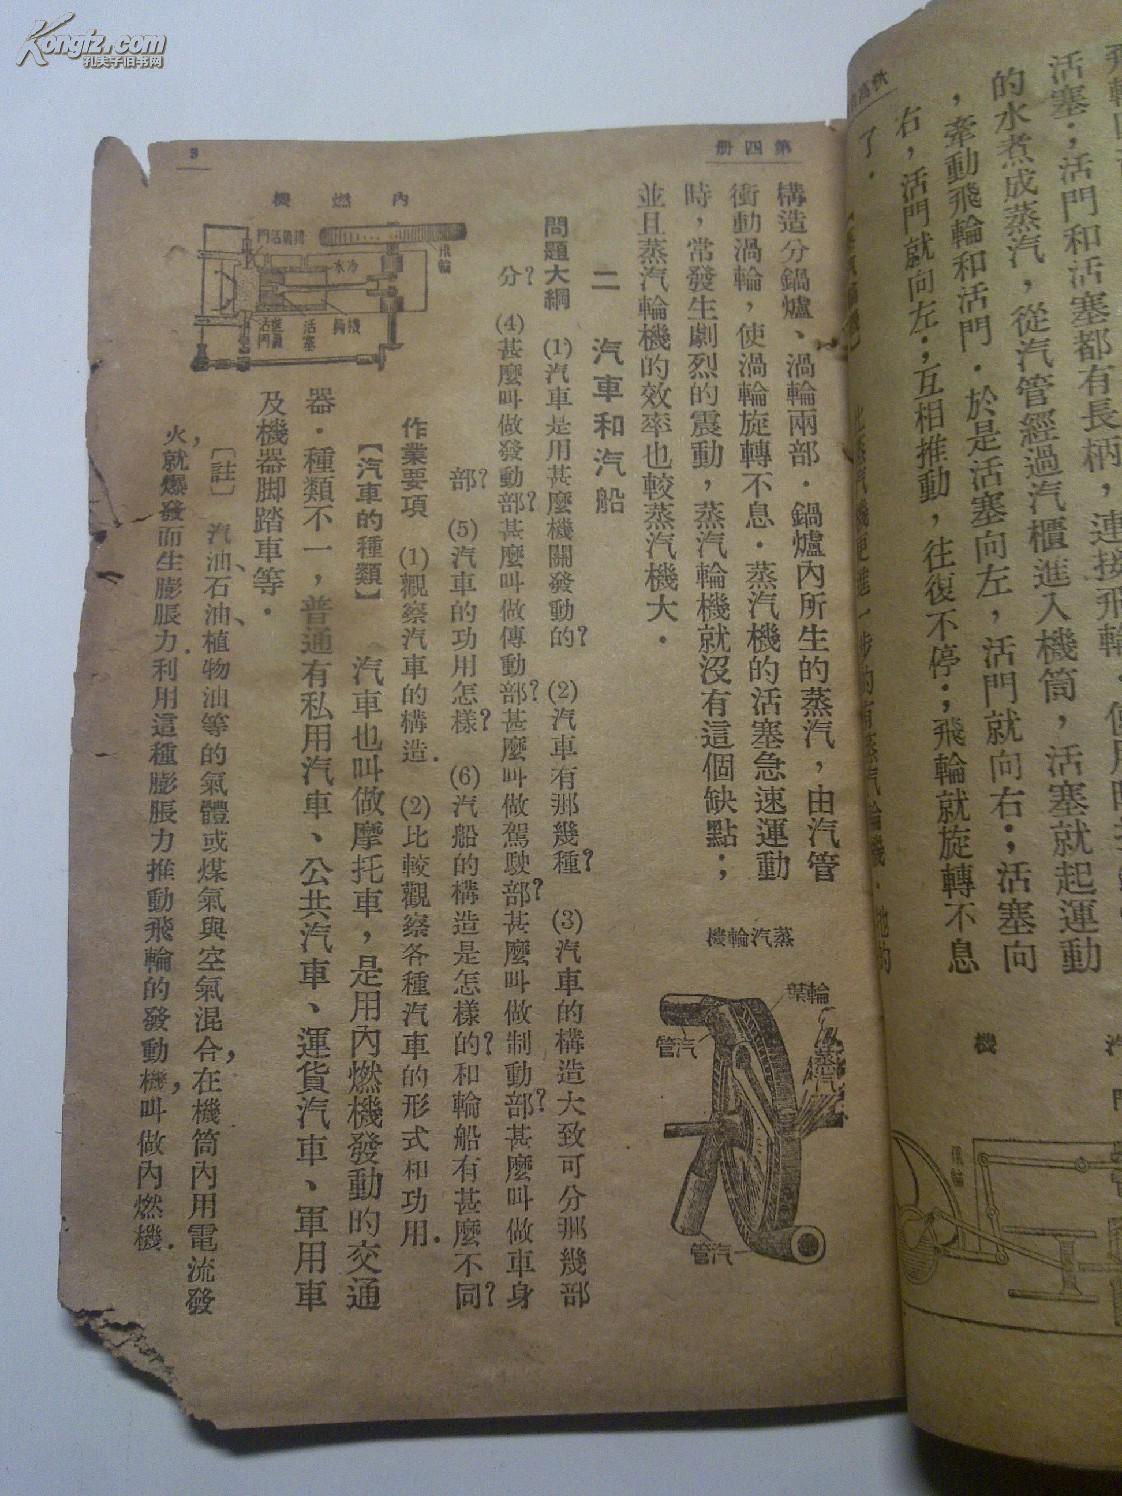 Kongfz.com
孔夫子旧书网
活塞；活門和活塞都有長柄，連接飛輪．使用時
的水煮成蒸汽，從汽管經過汽櫃進入機筒，活塞就起運動
，牽動飛輪和活門．於是活塞向左，活門就向右；活塞向
右，活門就向左；互相推動，往復不停；飛輪就旋轉不息
了．
機
飛輪
第四冊
構造分鍋爐、渦輪兩部．鍋爐內所生的蒸汽，由汽管
衝動渦輪，使渦輪旋轉不息．蒸汽機的活塞急速運動
時，常發生劇烈的震動，蒸汽輪機就沒有這個缺點；
並且蒸汽輪機的效率也較蒸汽機大．
蒸汽輪機
輪葉
汽管
蒸汽
汽管
二 汽車和汽船
問題大綱 (1)汽車是用甚麼機關發動的？ (2)汽車有那幾種？ (3)汽車的構造大致可分那幾部
分？ (4)甚麼叫做發動部？甚麼叫做傳動部？甚麼叫做駕駛部？甚麼叫做制動部？甚麼叫做車身
部？ (5)汽車的功用怎樣？ (6)汽船的構造是怎樣的？和輪船有甚麼不同？
作業要項 (1)觀察汽車的構造． (2)比較觀察各種汽車的形式和功用．
【汽車的種類】 汽車也叫做摩托車，是用內燃機發動的交通
器．種類不一，普通有私用汽車、公共汽車、運貨汽車、軍用車
及機器脚踏車等．
〔註〕 汽油、石油、植物油等的氣體或煤氣與空氣混合，在機筒內用電流發
火，就爆發而生膨脹力．利用這種膨脹力推動飛輪的發動機，叫做內燃機．
內燃機
飛輪
排氣活門
冷水
機筒
活塞
進氣活門